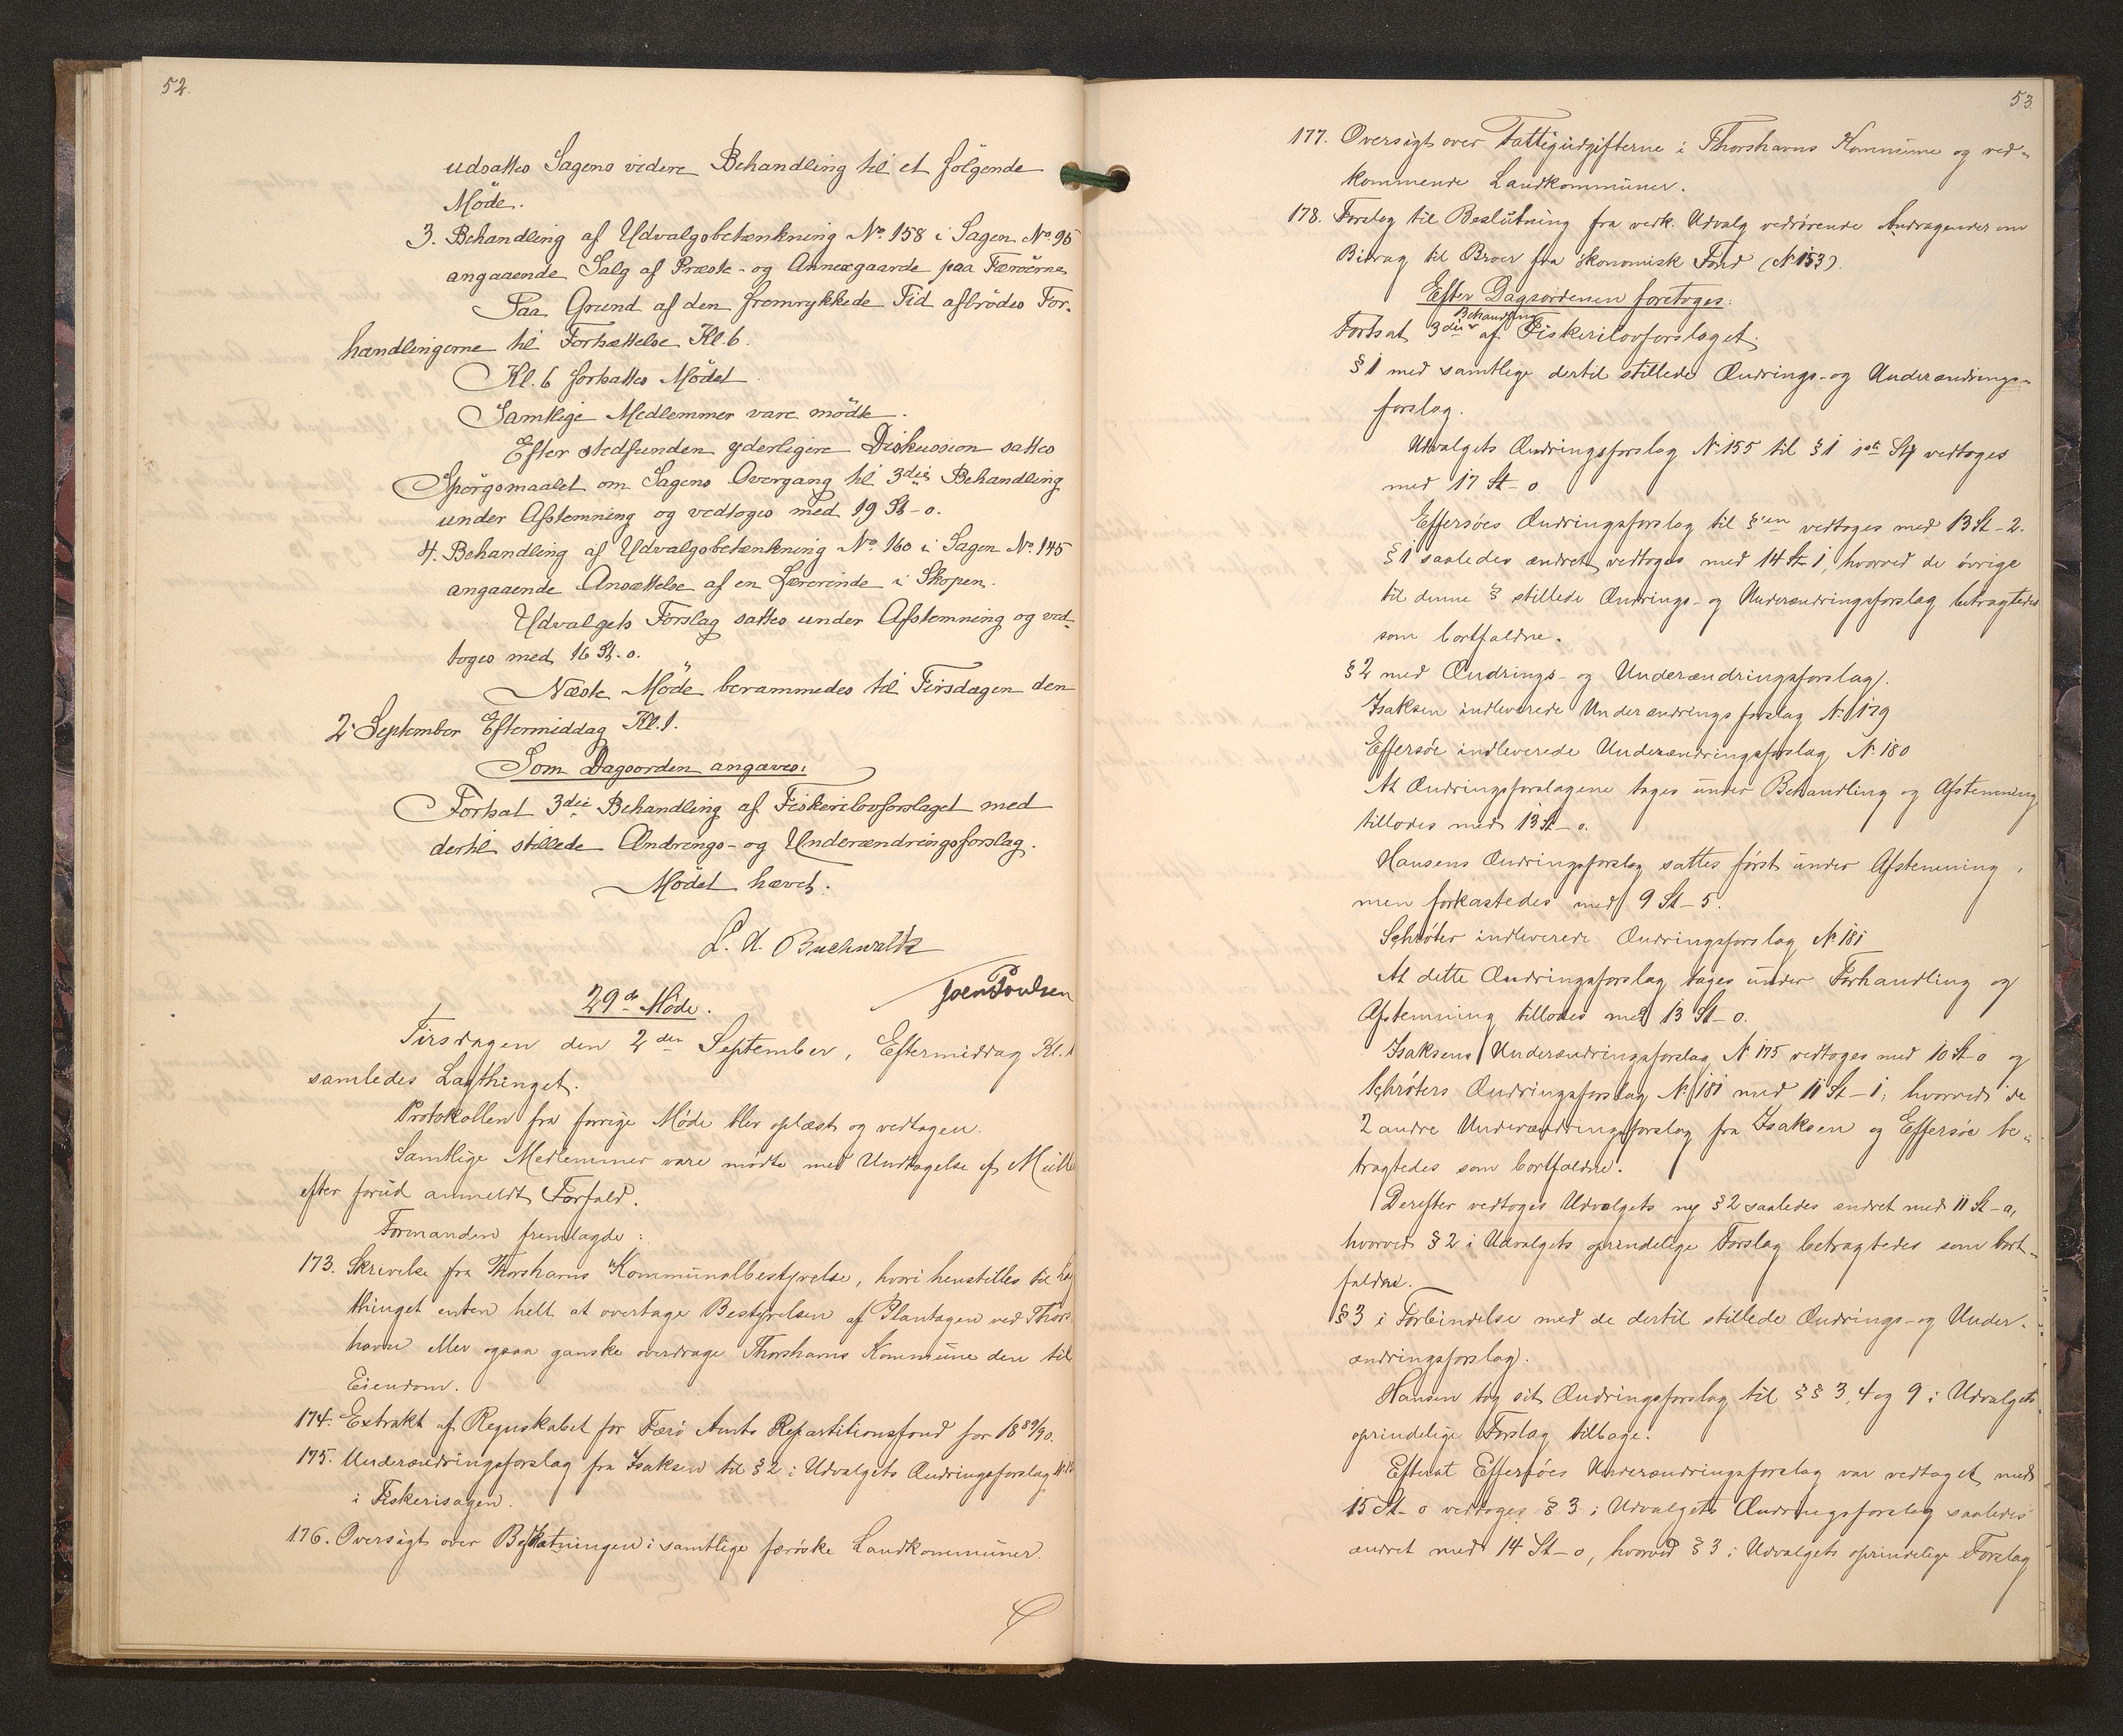 52.
udsattes Sagens videre Behandling til et følgende
Møde.
3. Behandling af Udvalgsbetænkning No. 158 i Sagen No. 95
angaaende Salg af Præste- og Annexgaarde paa Færøerne
Paa Grund af den fremrykkede Tid afbrødes For-
handlingerne til Fortsættelse Kl. 6.
Kl. 6 fortsattes Mødet.
Samtlige Medlemmer vare mødte.
Efter stedfunden yderligere Diskussion sattes
Spørgsmaalet om Sagens Overgang til 3die Behandling
under Afstemning og vedtoges med 19 St - 0.
4. Behandling af Udvalgsbetænkning No. 160 i Sagen No. 145
angaaende Ansættelse af en Lærerinde i Skopen.
Udvalgets Forslag sattes under Afstemning og ved-
toges med 16 St. 0.
Næste Møde berammedes til Tirsdagen den
2. September Eftermiddag Kl. 1.
Som Dagsorden angaves:
Fortsat 3die Behandling af Fiskerilovforslaget med
dertil stillede Ændrings- og Underændringsforslag.
Mødet hævet.
L. A. Buchwaldt
Joen Poulsen
29de Møde.
Tirsdagen den 2den September, Eftermiddag Kl. 1
samledes Lagthinget.
Protokollen fra forrige Møde blev oplæst og vedtagen.
Samtlige Medlemmer vare mødte med Undtagelse af Müll
efter forud anmeldt Forfald.
Formanden fremlagde:
173. Skrivelse fra Thorshavns Kommunalbestyrelse, hvori henstilles til Lag
thinget enten helt at overtage Bestyrelsen af Plantagen ved Thors
havn eller ogsaa ganske overdrage Thorshavns Kommune den til
Eiendom.
174. Extrakt af Regnskabet for Færø Amts Repartitionsfond for 1889/90.
175. Underændringsforslag fra Isaksen til § 2 i Udvalgets Ændringsforslag
i Fiskerisagen.
176. Oversigt over Beskatningen i samtlige færøske Landkommuner.
53.
177. Oversigt over Fattigudgifterne i Thorshavns Kommune og ved-
kommende Landkommuner.
178. Forslag til Beslutning fra vedk. Udvalg vedrørende Andragender om
Bidrag til Broer fra økonomisk Fond (No 153).
Efter Dagsordenen foretoges:
Behandling
Fortsat 3die af Fiskerilovforslaget.
§ 1 med samtlige dertil stillede Ændrings- og Underændrings-
forslag.
Udvalgets Ændringsforslag No 155 til § 1 1ste Stk vedtoges
med 17 St - 0.
Effersøes Ændringsforslag til §'en vedtoges med 13 St - 2.
§ 1 saaledes ændret vedtoges med 14 St 1, hvorved de øvrige
til denne § stillede Ændrings- og Underændringsforslag betragtedes
som bortfaldne.
§ 2 med Ændrings- og Underændringsforslag.
Isaksen indleverede Underændringsforslag No 179
Effersøe indleverede Underændringsforslag No 180
At Ændringsforslagene toges under Behandling og Afstemning
tillodes med 13 St - 0.
Hansens Ændringsforslag sattes først under Afstemning,
men forkastedes med 9 St - 5.
Schrøter indleverede Ændringsforslag No 181
At dette Ændringsforslag toges under Forhandling og
Afstemning tillodes med 13 St - 0.
Isaksens Underændringsforslag No 175 vedtoges med 10 St - 0 og
Schrøters Ændringsforslag No 181 med 11 St - 1; hvorved de
2 andre Underændringsforslag fra Isaksen og Effersøe be-
tragtedes som bortfaldne.
Derefter vedtoges Udvalgets ny § 2 saaledes ændret med 11 St - 0,
hvorved § 2 i Udvalgets oprindelige Forslag betragtedes som bort-
faldne.
§ 3 i Forbindelse med de dertil stillede Ændrings- og Under-
ændringsforslag.
Hansen tog sit Ændringsforslag til §§ 3, 4 og 9 i Udvalgets
oprindelige Forslag tilbage.
Efterat Effersøes Underændringsforslag var vedtaget med
15 St - 0 vedtoges § 3 i Udvalgets Ændringsforslag saaledes
ændret med 14 St - 0, hvorved § 3 i Udvalgets oprindelige Forslag